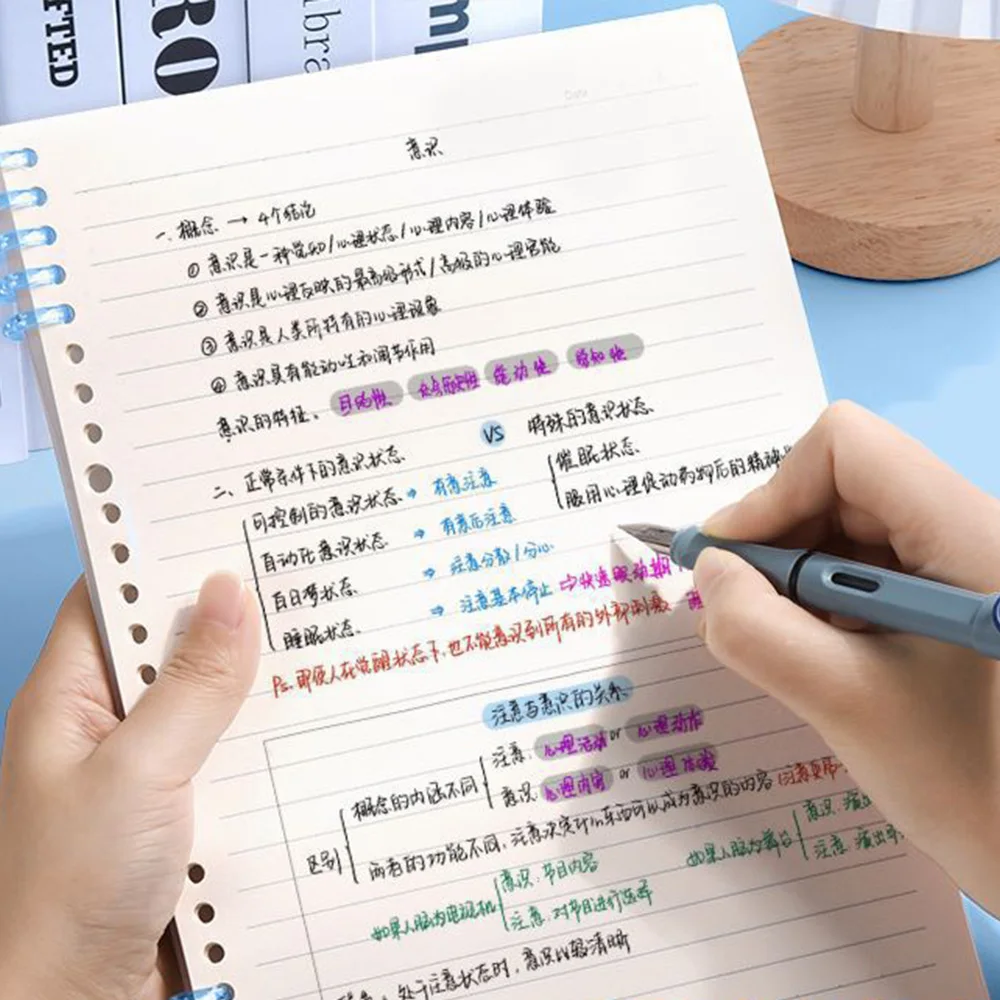 FTED
RO
bra
Date
意识
一、概念 → 4个结论
① 意识是一种觉知/心理状态/心理内容/心理体验
② 意识是心理反映的最高级形式/高级的心理官能
③ 意识是人类所特有的心理现象
④ 意识具有能动性和调节作用
意识的特征: 目的性 社会历史性 能动性 觉知性
二、正常条件下的意识状态 VS 特殊的意识状态
可控制的意识状态 → 有意注意 催眠状态
自动化意识状态 → 有意后注意 服用心理促动药物后的精神
白日梦状态 → 注意分散/分心
睡眠状态 → 注意基本停止 → 快速眼动期
Ps. 即使人在觉醒状态下,也不能意识到所有的外部刺激
注意与意识的关系
区别 概念的内涵不同 注意: 心理活动 or 心理动作
意识: 心理内容 or 心理体验
两者的功能不同, 注意决定什么东西可以成为意识的内容
如果人脑为电视机 意识: 节目内容 如果人脑为舞台 意识: 演出
注意: 对节目进行选择 注意: 演出
处于注意状态时, 意识比较清晰